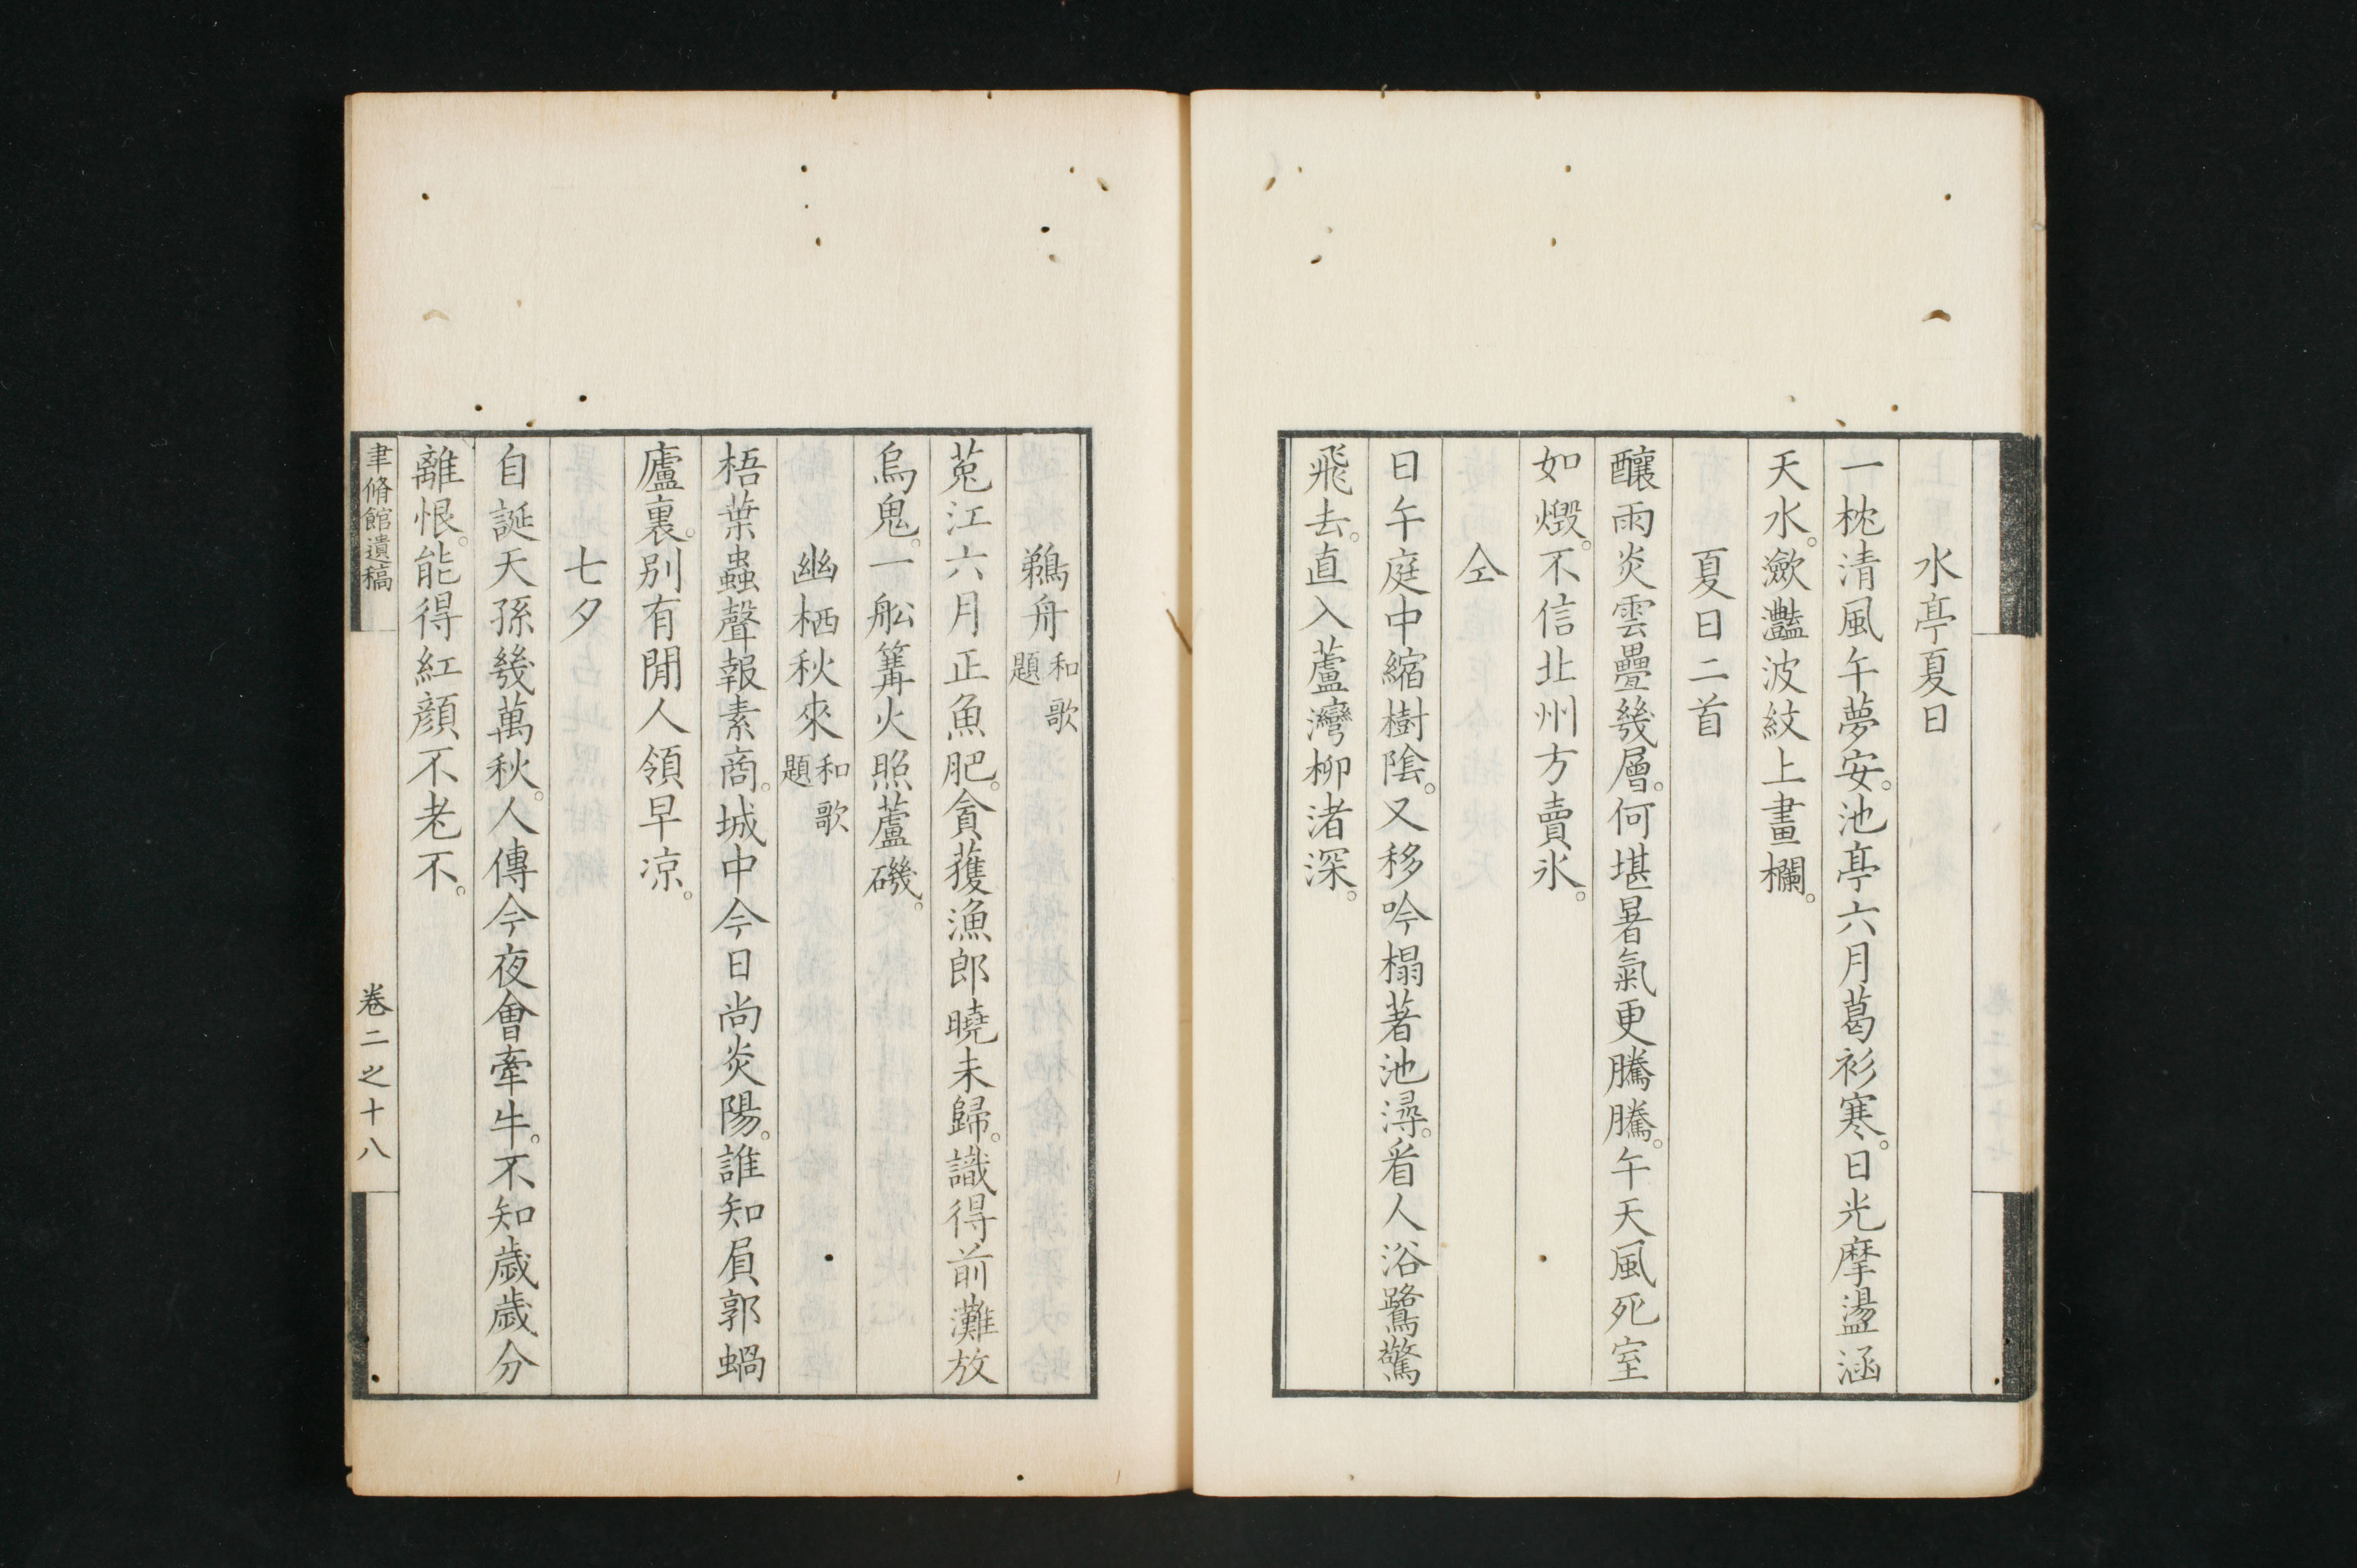 水亭夏日
一枕清風午夢安。池亭六月葛衫寒。日光摩盪涵
天水。瀲灩波紋上畫欄。
夏日二首
釀雨炎雲疊幾層。何堪暑氣更騰騰。午天風死室
如燬。不信北州方賣氷。
仝
日午庭中縮樹陰。又移吟榻著池潯。看人浴鷺驚
飛去。直入蘆灣柳渚深。
鵜舟 和歌題
菟江六月正魚肥。貪獲漁郎曉未歸。識得前灘放
烏鬼。一舩篝火照蘆磯。
幽栖秋來 和歌題
梧葉蟲聲報素商。城中今日尚炎陽。誰知負郭蝸
廬裏。別有閒人領早凉。
七夕
自誕天孫幾萬秋。人傳今夜會牽牛。不知歲歲分
離恨。能得紅顔不老不。
聿脩館遺稿
卷二之十八